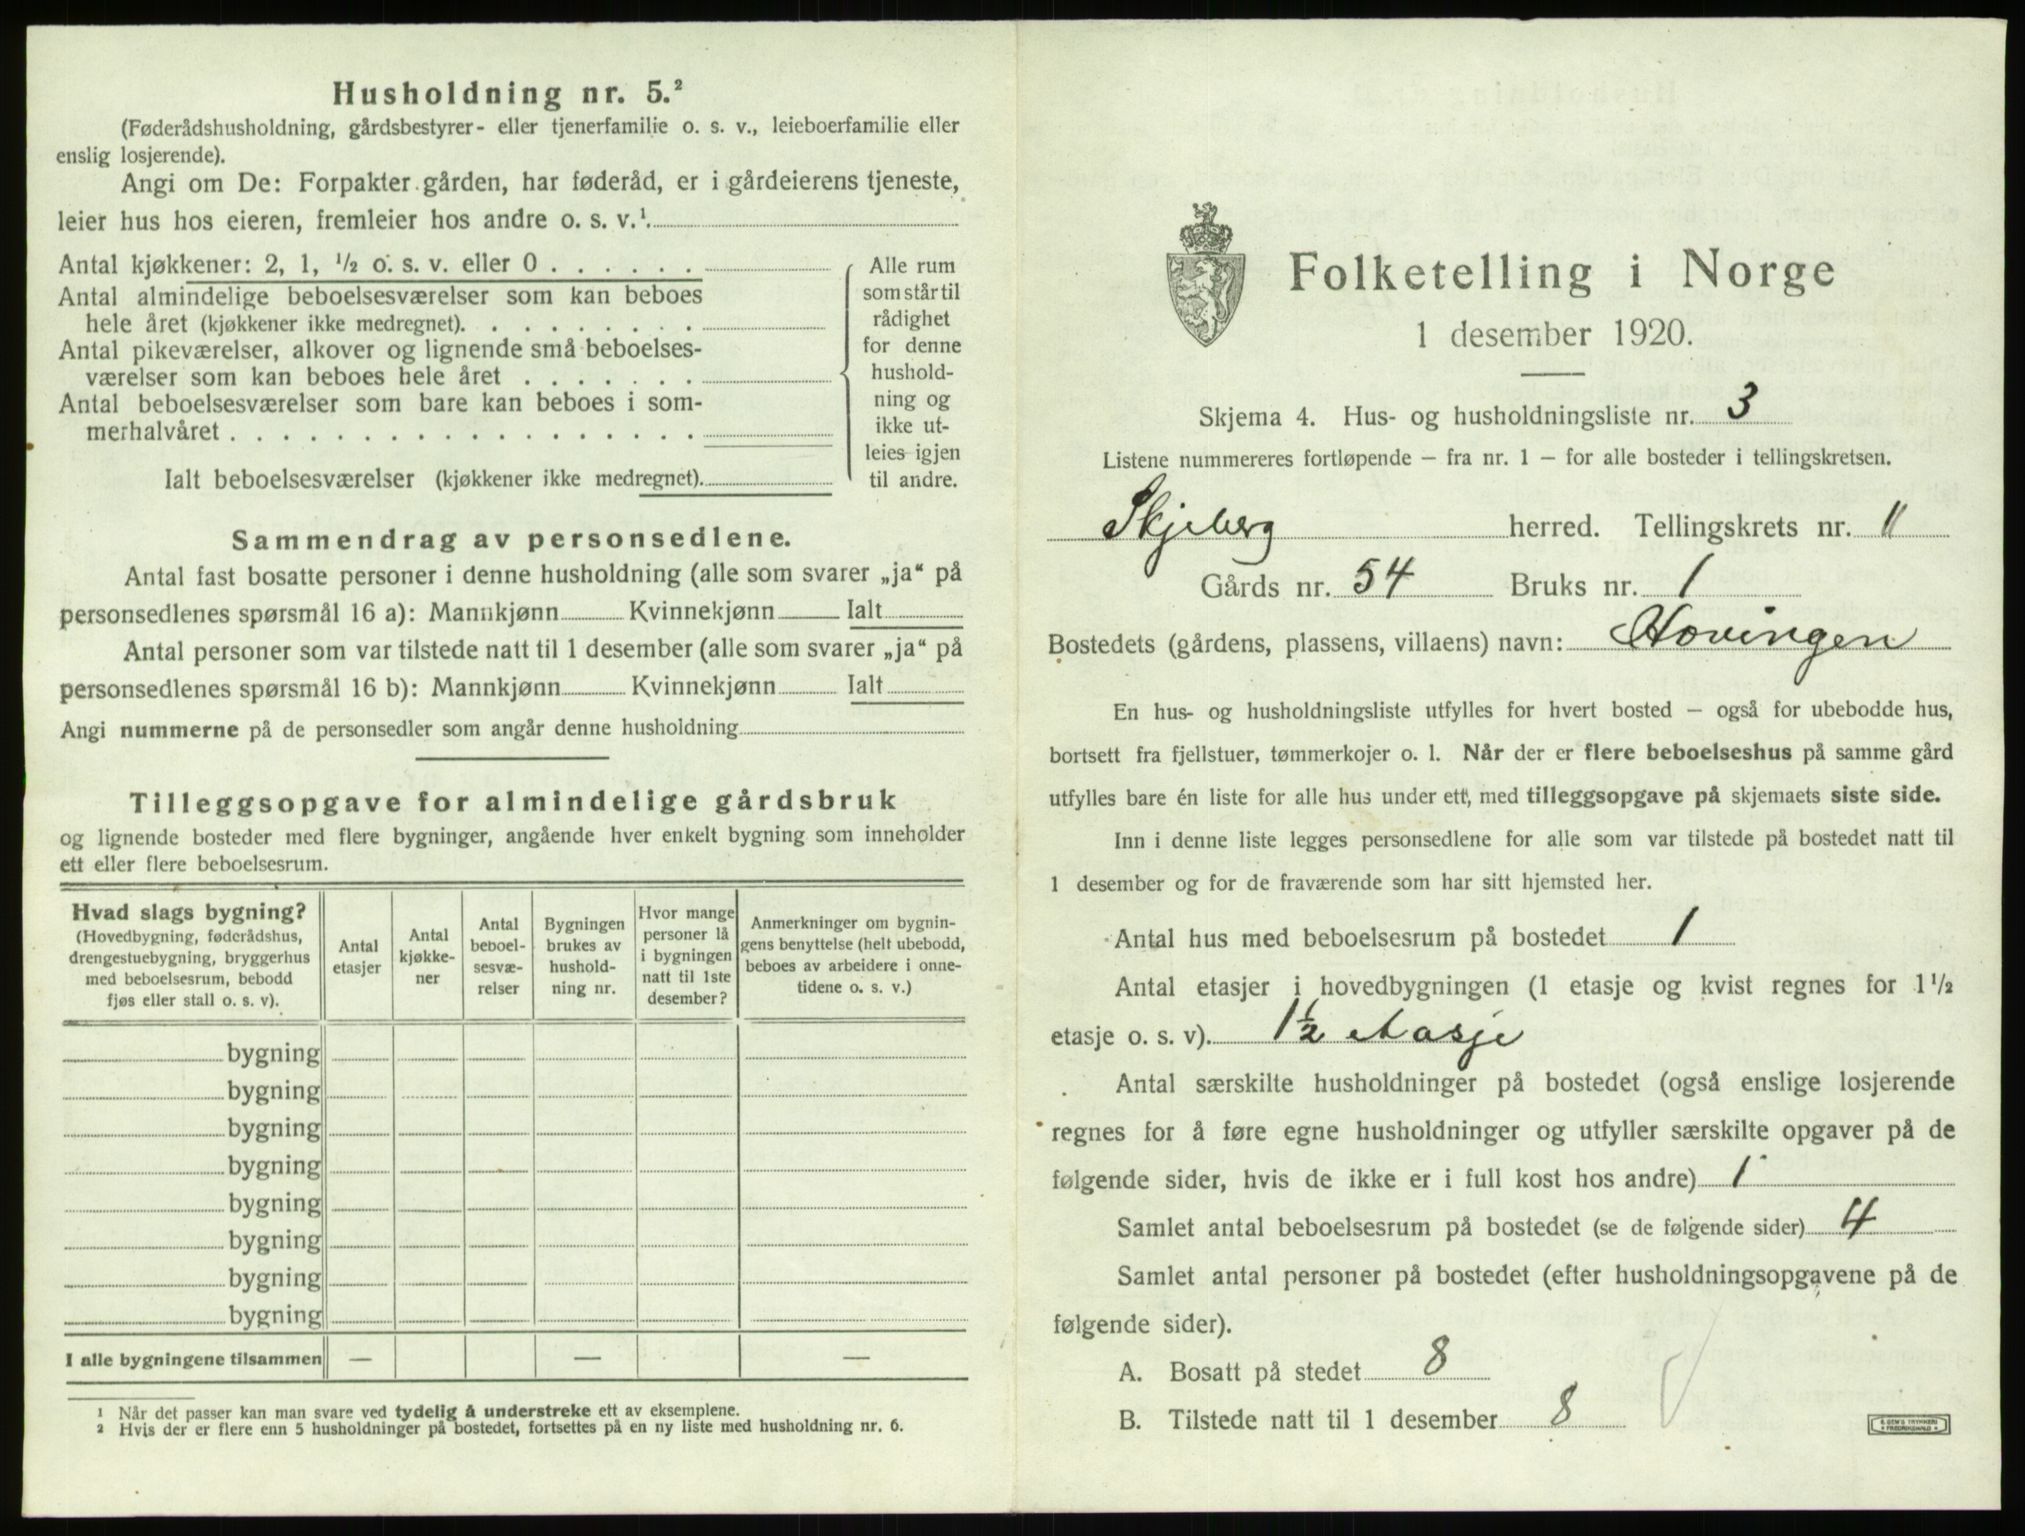 Husholdning nr. 5.²
(Føderådshusholdning, gårdsbestyrer- eller tjenerfamilie o. s. v., leieboerfamilie eller
enslig losjerende).
Angi om De: Forpakter gården, har føderåd, er i gårdeierens tjeneste,
leier hus hos eieren, fremleier hos andre o. s. v.¹.
Antal kjøkkener: 2, 1, ½ o. s. v. eller 0 . . . . . .
Antal almindelige beboelsesværelser som kan beboes
hele året (kjøkkener ikke medregnet). . . . . . . . .
Antal pikeværelser, alkover og lignende små beboelses-
værelser som kan beboes hele året . . . . . . .
Antal beboelsesværelser som bare kan beboes i som-
merhalvåret . . . . . . . . . . . . . . . . . .
Ialt beboelsesværelser (kjøkkener ikke medregnet).
Alle rum
som står til
rådighet
for denne
hushold-
ning og
ikke ut-
leies igjen
til andre.
Sammendrag av personsedlene.
Antal fast bosatte personer i denne husholdning (alle som svarer „ja“ på
personsedlenes spørsmål 16 a): Mannkjønn Kvinnekjønn Ialt
Antal personer som var tilstede natt til 1 desember (alle som svarer „ja“ på
personsedlenes spørsmål 16 b): Mannkjønn Kvinnekjønn Ialt
Angi nummerne på de personsedler som angår denne husholdning
Tilleggsopgave for almindelige gårdsbruk
og lignende bosteder med flere bygninger, angående hver enkelt bygning som inneholder
ett eller flere beboelsesrum.
Hvad slags bygning?
(Hovedbygning, føderådshus,
drengestuebygning, bryggerhus
med beboelsesrum, bebodd
fjøs eller stall o. s. v).
Antal
etasjer
Antal
kjøkke-
ner
Antal
beboel-
sesvæ-
relser
Bygningen
brukes av
hushold-
ning nr.
Hvor mange
personer lå
i bygningen
natt til 1ste
desember?
Anmerkninger om bygnin-
gens benyttelse (helt ubebodd,
beboes av arbeidere i onne-
tidene o. s. v.)
bygning
bygning
bygning
bygning
bygning
bygning
bygning
bygning
I alle bygningene tilsammen — — —
¹ Når det passer kan man svare ved tydelig å understreke ett av eksemplene.
² Hvis der er flere enn 5 husholdninger på bostedet, fortsettes på en ny liste med husholdning nr. 6.
Folketelling i Norge
1 desember 1920.
Skjema 4. Hus- og husholdningsliste nr. 3
Listene nummereres fortløpende – fra nr. 1 – for alle bosteder i tellingskretsen.
Skjeberg herred. Tellingskrets nr. 11
Gårds nr. 54 Bruks nr. 1
Bostedets (gårdens, plassens, villaens) navn: Hovingen
En hus- og husholdningsliste utfylles for hvert bosted – også for ubebodde hus,
bortsett fra fjellstuer, tømmerkojer o. l. Når der er flere beboelseshus på samme gård
utfylles bare én liste for alle hus under ett, med tilleggsopgave på skjemaets siste side.
Inn i denne liste legges personsedlene for alle som var tilstede på bostedet natt til
1 desember og for de fraværende som har sitt hjemsted her.
Antal hus med beboelsesrum på bostedet 1
Antal etasjer i hovedbygningen (1 etasje og kvist regnes for 1½
etasje o. s. v). 1½ etasje
Antal særskilte husholdninger på bostedet (også enslige losjerende
regnes for å føre egne husholdninger og utfyller særskilte opgaver på de
følgende sider, hvis de ikke er i full kost hos andre) 1
Samlet antal beboelsesrum på bostedet (se de følgende sider) 4
Samlet antal personer på bostedet (efter husholdningsopgavene på de
følgende sider).
A. Bosatt på stedet 8
B. Tilstede natt til 1 desember 8